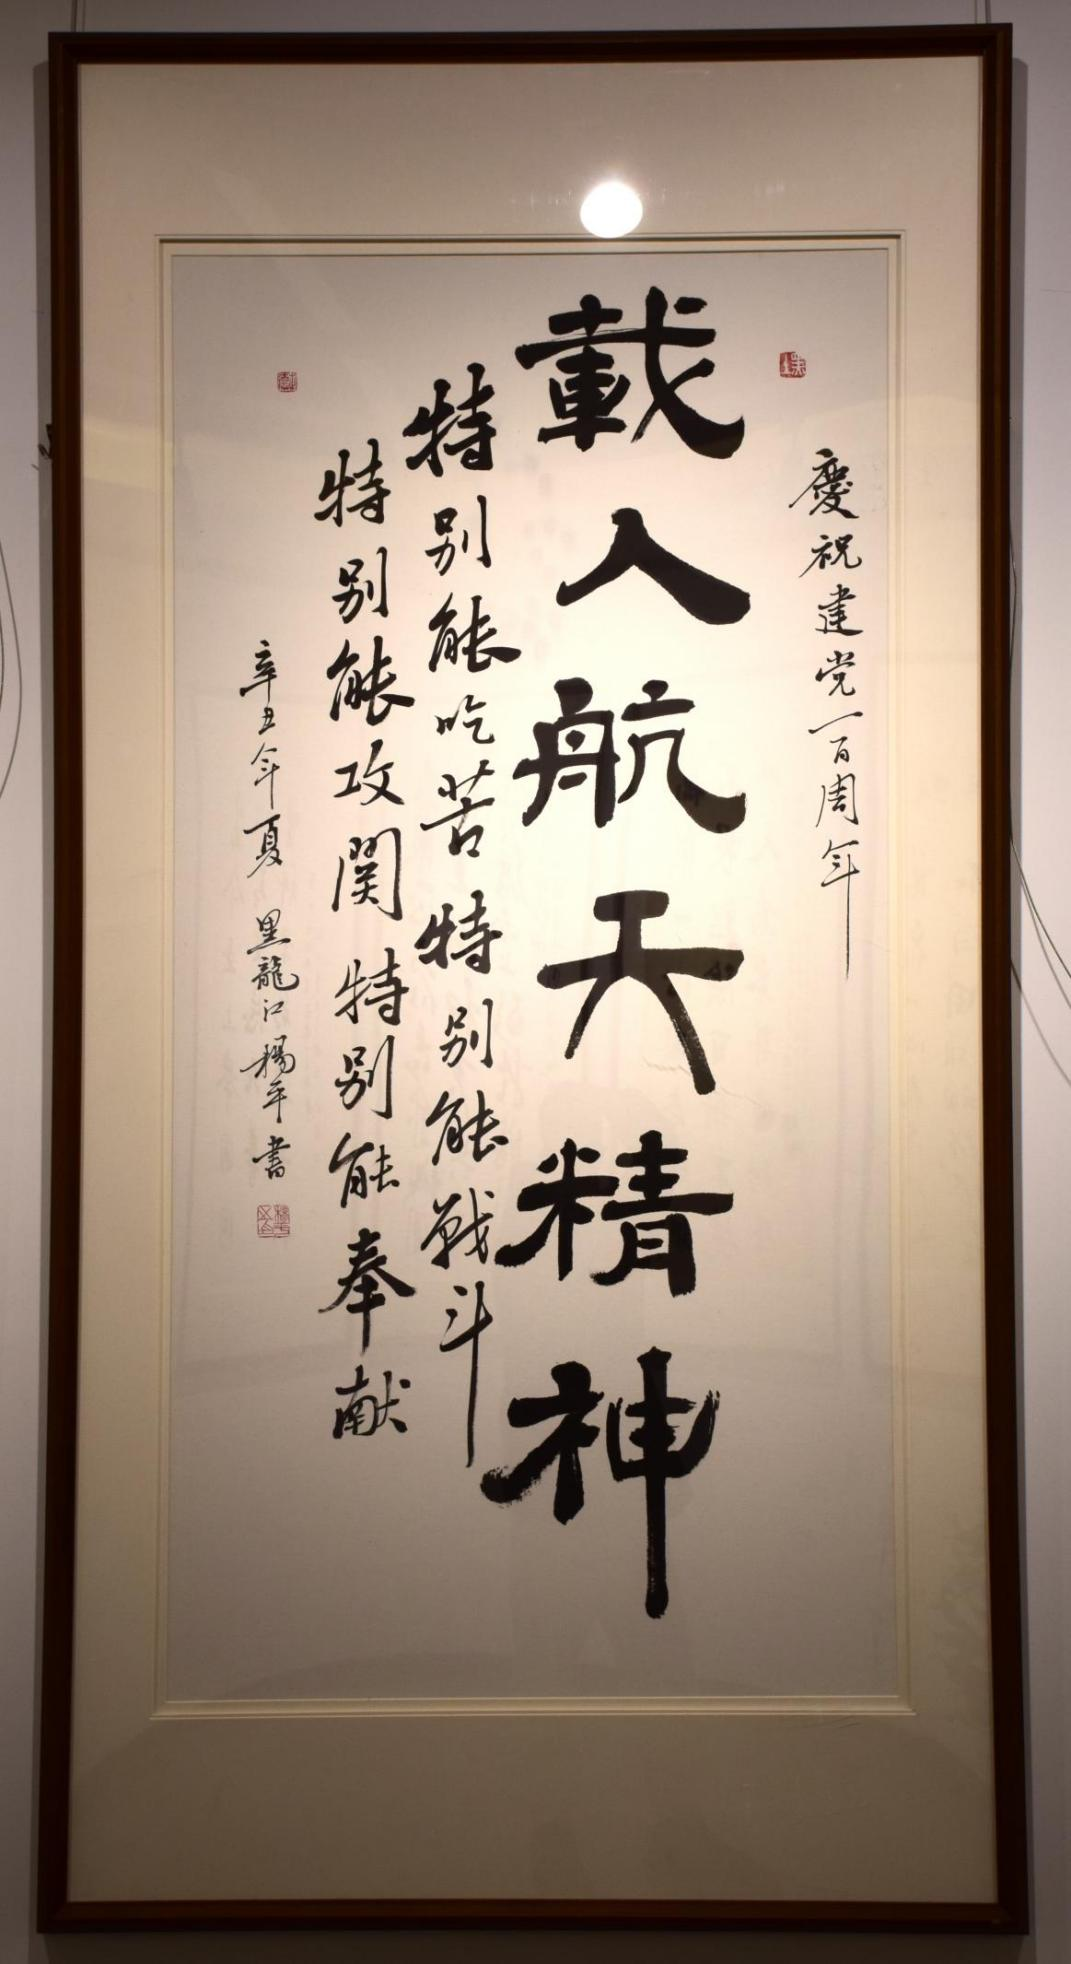 慶祝建党一百周年
載人航天精神
特别能吃苦特别能战斗
特别能攻関特别能奉献
辛丑年夏 黑龍江楊平書